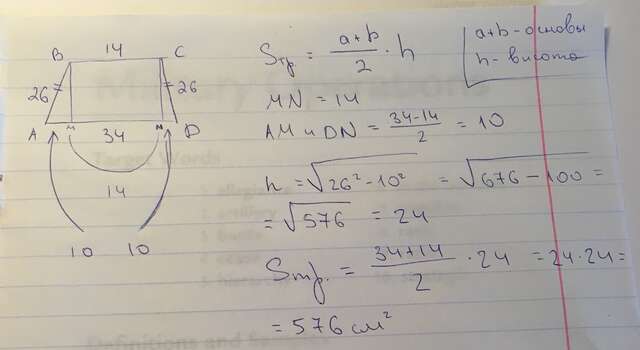 14
B C
26 26
A M 34 N D
14
10 10
Sтр. = a+b/2 · h
a+b - основы
h - висота
MN = 14
AM и DN = 34-14/2 = 10
h = √26² - 10² = √676 - 100 =
= √576 = 24
Sтр. = 34+14/2 · 24 = 24·24 =
= 576 см²
Target Words